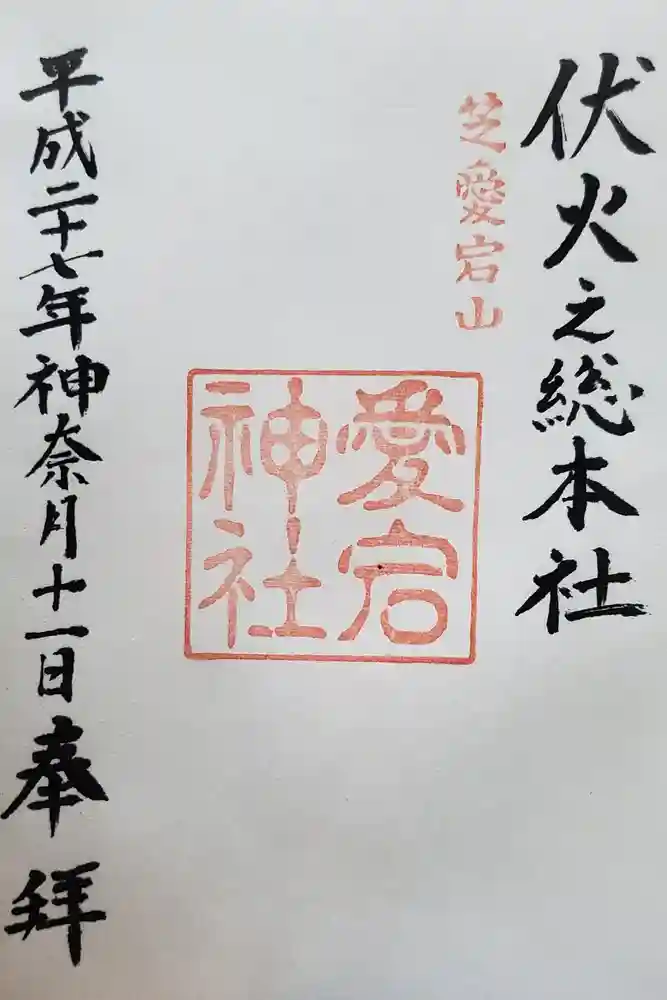 伏火之総本社
芝愛宕山
愛宕
神社
平成二十七年神奈月十一日奉拝